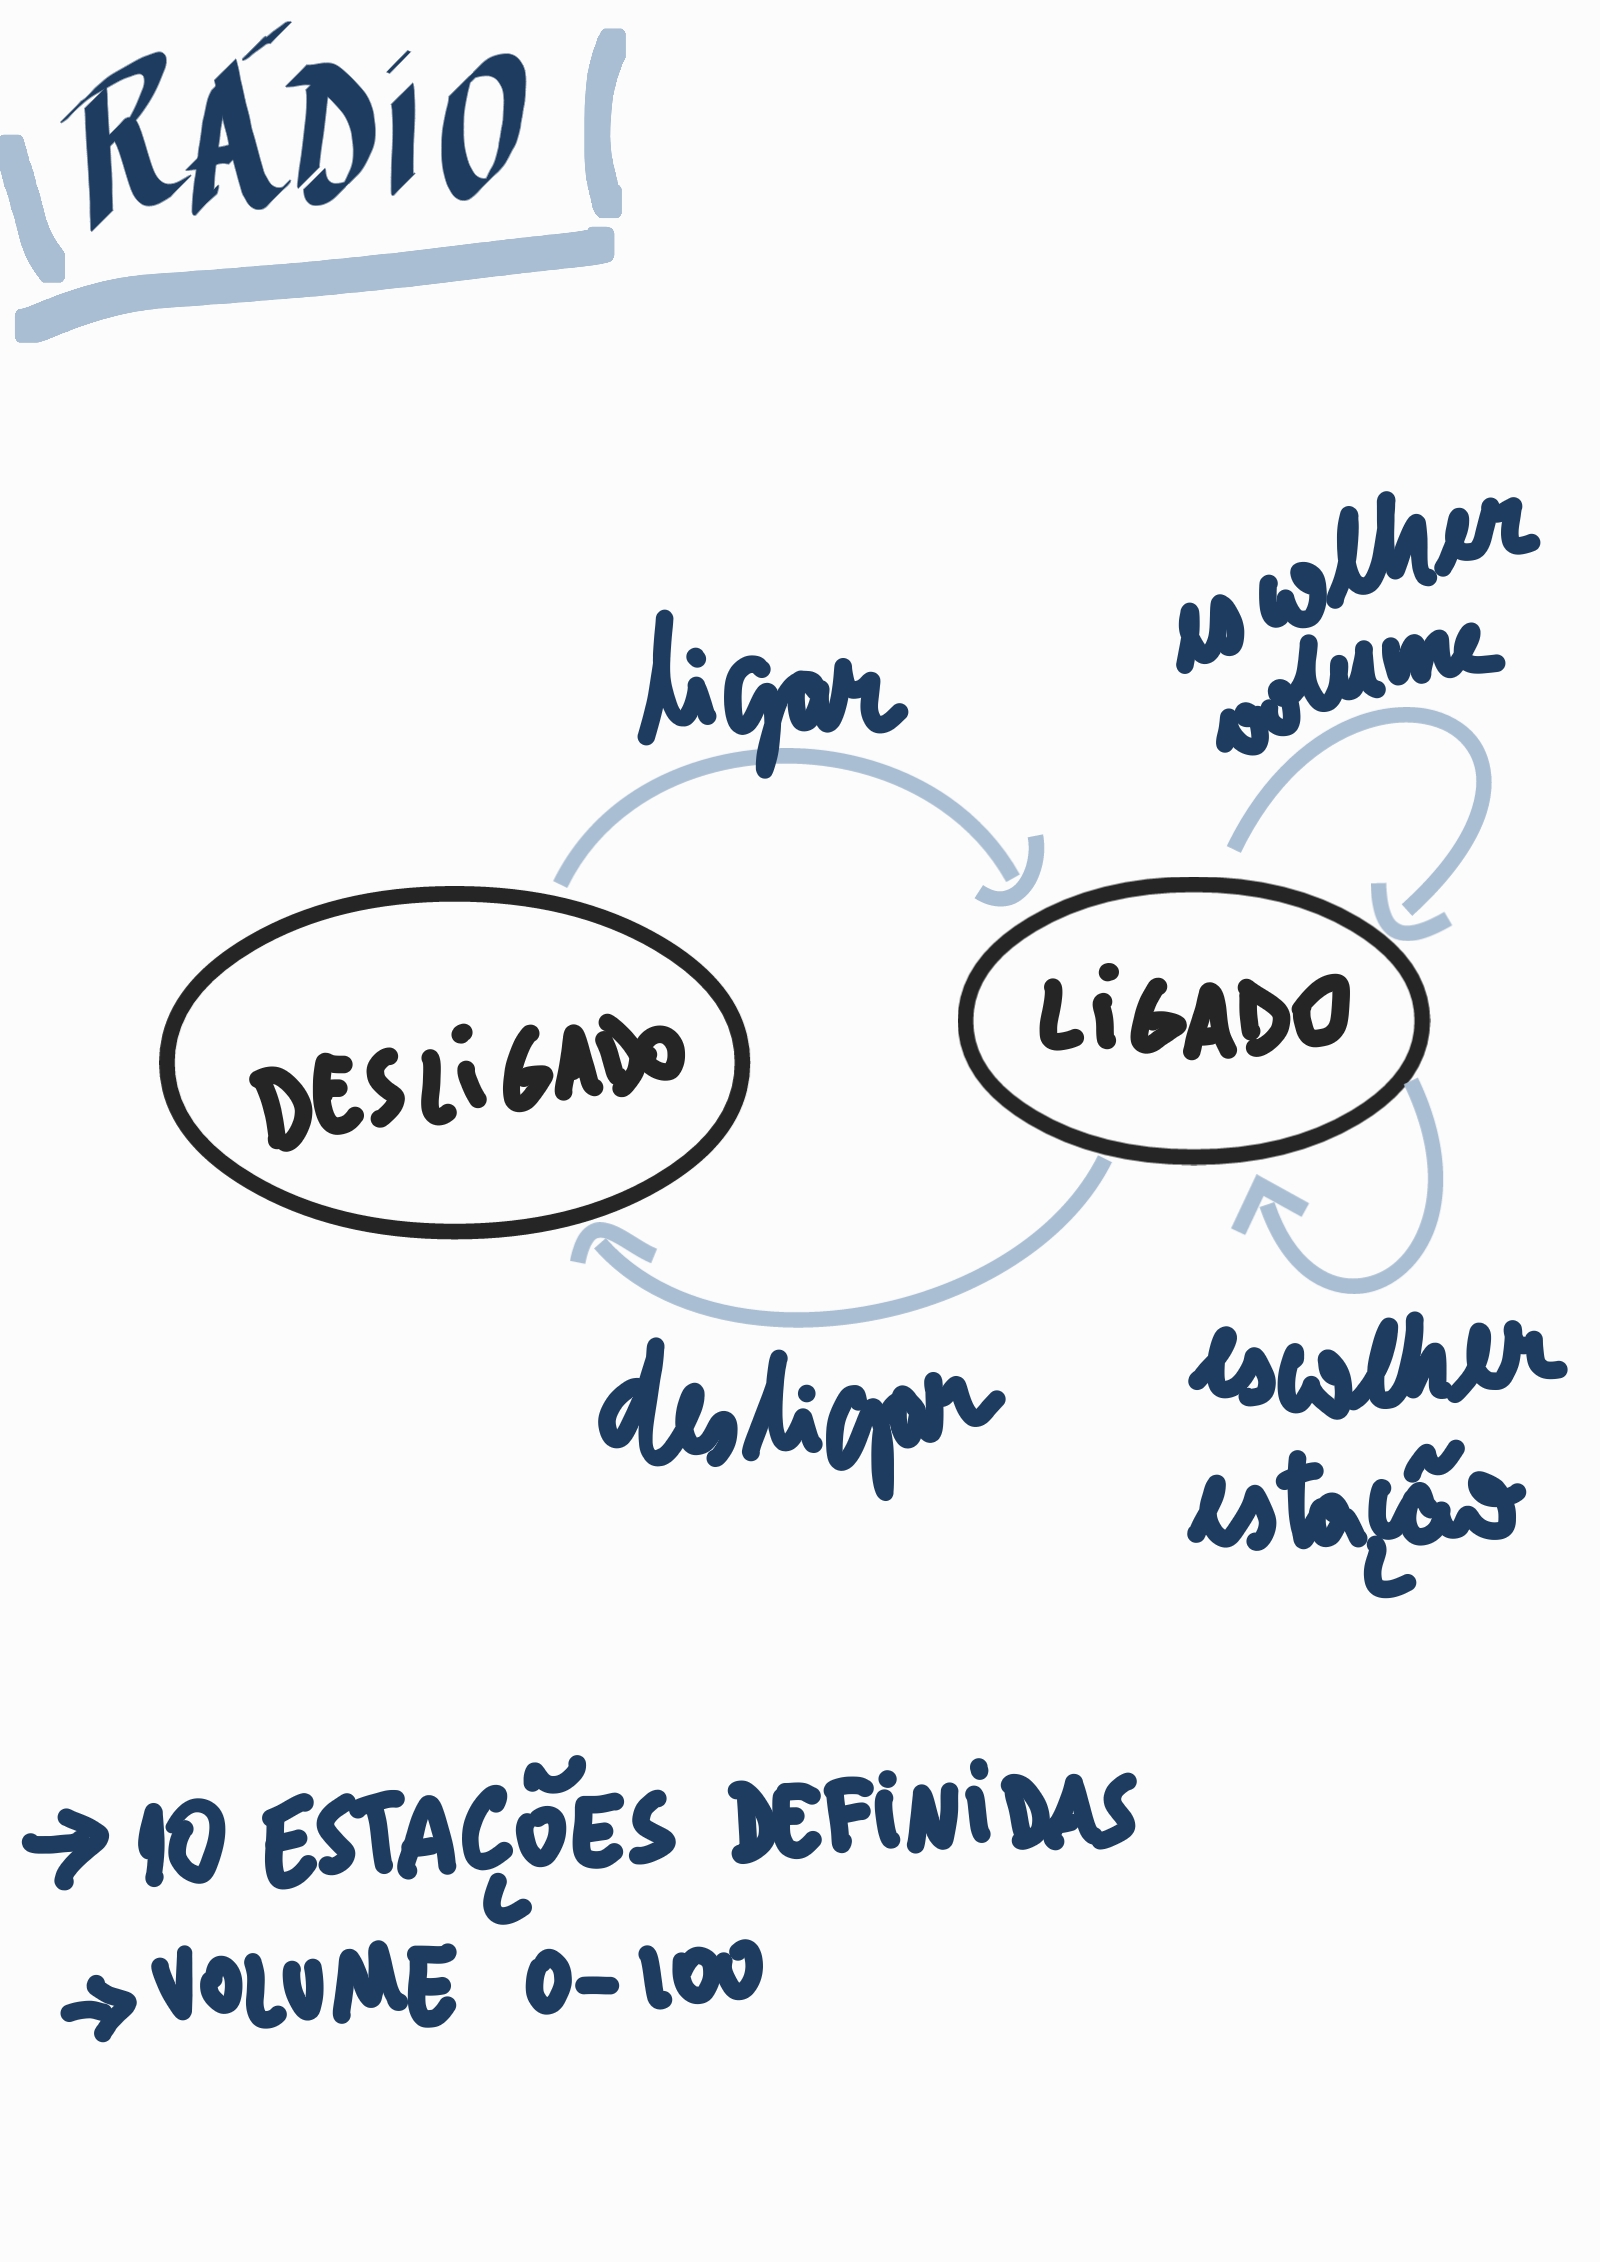 RÁDIO
ligar
escolher
volume
DESLIGADO
LIGADO
desligar
escolher
estação
→ 10 ESTAÇÕES DEFINIDAS
→ VOLUME 0-100